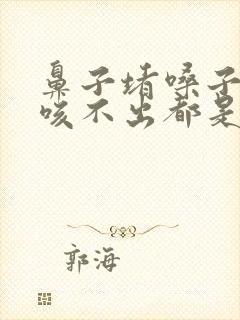 鼻子堵嗓子
咳不出都是
郭海